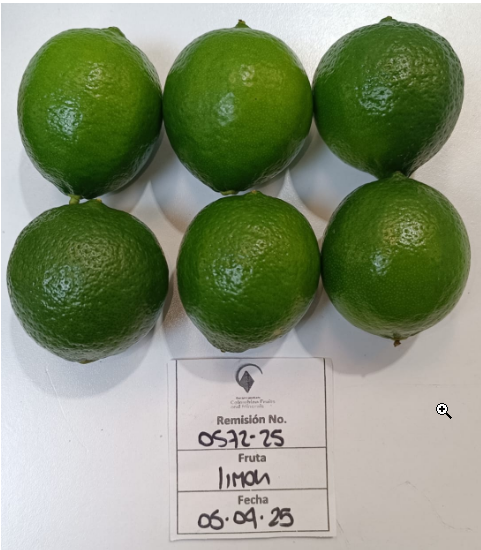 Colombian Fruits
and Minerals
Remisión No.
0572-25
Fruta
limon
Fecha
05.09.25